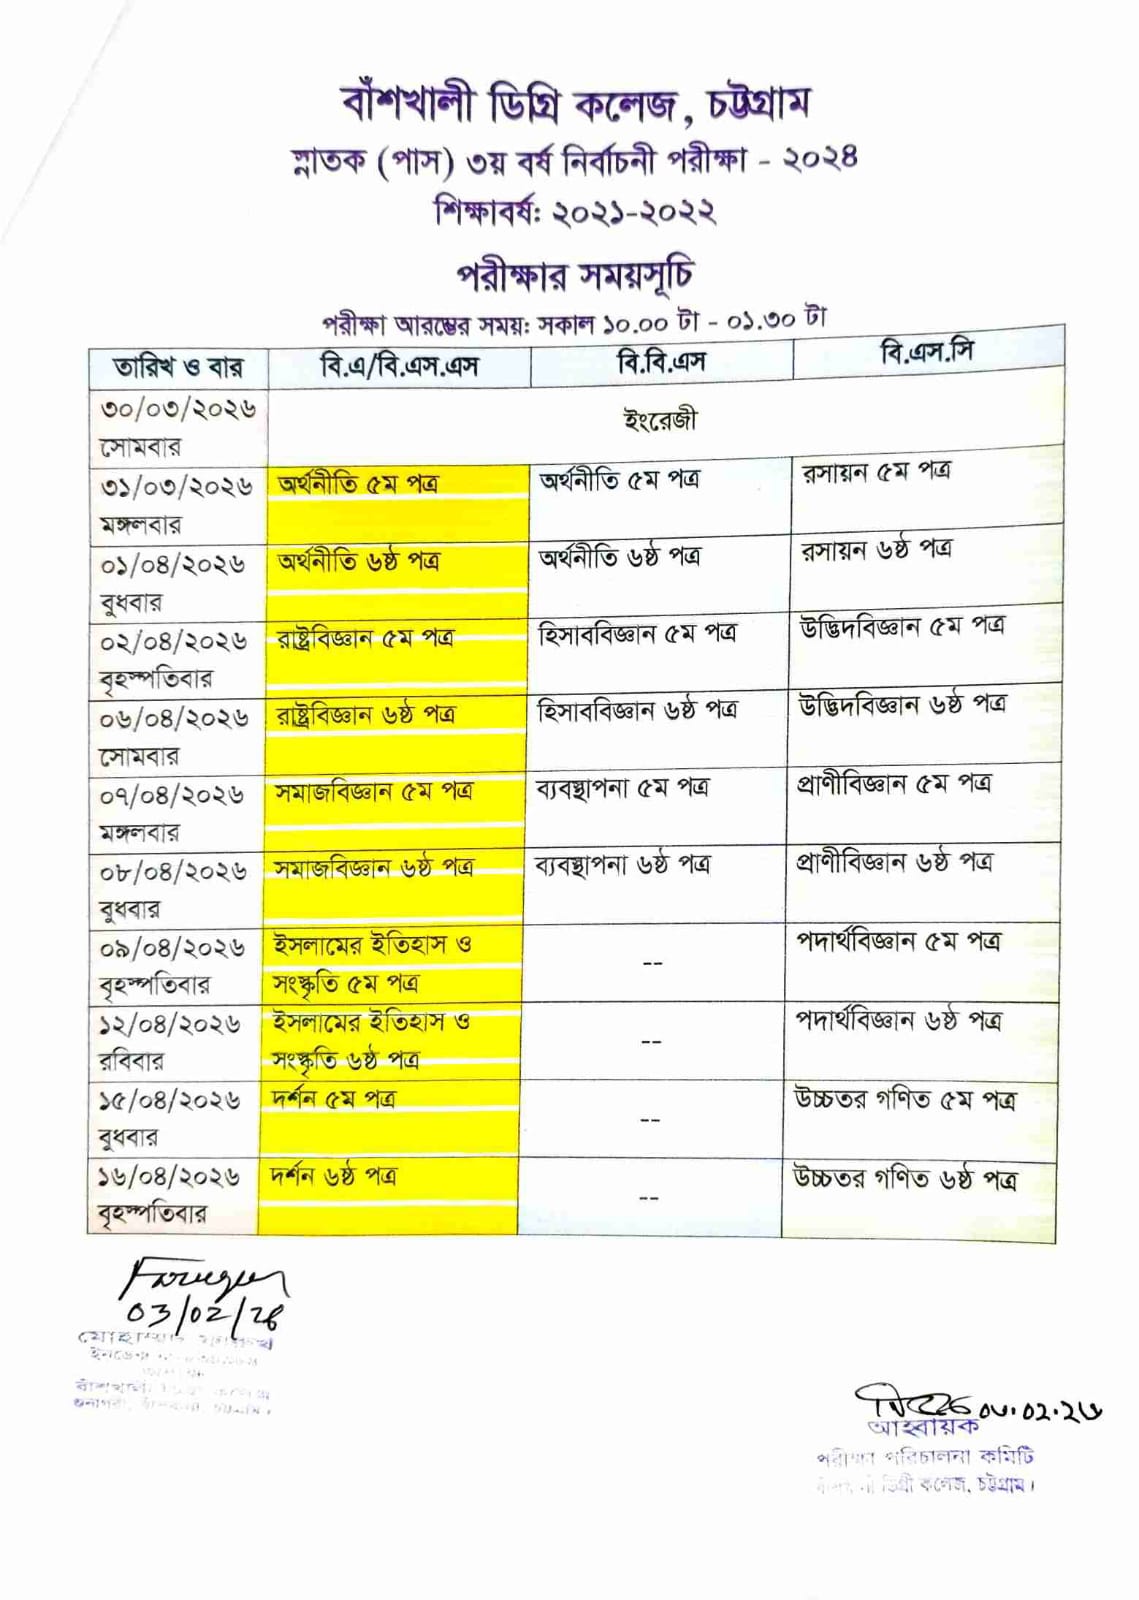 বাঁশখালী ডিগ্রি কলেজ, চট্টগ্রাম
স্নাতক (পাস) ৩য় বর্ষ নির্বাচনী পরীক্ষা - ২০২৪
শিক্ষাবর্ষ: ২০২১-২০২২
পরীক্ষার সময়সূচি
পরীক্ষা আরম্ভের সময়: সকাল ১০.০০ টা - ০১.৩০ টা
তারিখ ও বার বি.এ/বি.এস.এস বি.বি.এস বি.এস.সি
৩০/০৩/২০২৬ ইংরেজী
সোমবার
৩১/০৩/২০২৬ অর্থনীতি ৫ম পত্র অর্থনীতি ৫ম পত্র রসায়ন ৫ম পত্র
মঙ্গলবার
০১/০৪/২০২৬ অর্থনীতি ৬ষ্ঠ পত্র অর্থনীতি ৬ষ্ঠ পত্র রসায়ন ৬ষ্ঠ পত্র
বুধবার
০২/০৪/২০২৬ রাষ্ট্রবিজ্ঞান ৫ম পত্র হিসাববিজ্ঞান ৫ম পত্র উদ্ভিদবিজ্ঞান ৫ম পত্র
বৃহস্পতিবার
০৬/০৪/২০২৬ রাষ্ট্রবিজ্ঞান ৬ষ্ঠ পত্র হিসাববিজ্ঞান ৬ষ্ঠ পত্র উদ্ভিদবিজ্ঞান ৬ষ্ঠ পত্র
সোমবার
০৭/০৪/২০২৬ সমাজবিজ্ঞান ৫ম পত্র ব্যবস্থাপনা ৫ম পত্র প্রাণীবিজ্ঞান ৫ম পত্র
মঙ্গলবার
০৮/০৪/২০২৬ সমাজবিজ্ঞান ৬ষ্ঠ পত্র ব্যবস্থাপনা ৬ষ্ঠ পত্র প্রাণীবিজ্ঞান ৬ষ্ঠ পত্র
বুধবার
০৯/০৪/২০২৬ ইসলামের ইতিহাস ও -- পদার্থবিজ্ঞান ৫ম পত্র
বৃহস্পতিবার সংস্কৃতি ৫ম পত্র
১২/০৪/২০২৬ ইসলামের ইতিহাস ও -- পদার্থবিজ্ঞান ৬ষ্ঠ পত্র
রবিবার সংস্কৃতি ৬ষ্ঠ পত্র
১৫/০৪/২০২৬ দর্শন ৫ম পত্র -- উচ্চতর গণিত ৫ম পত্র
বুধবার
১৬/০৪/২০২৬ দর্শন ৬ষ্ঠ পত্র -- উচ্চতর গণিত ৬ষ্ঠ পত্র
বৃহস্পতিবার
03/02/26
০৩.০২.২৬
আহবায়ক
পরীক্ষা পরিচালনা কমিটি
ডিগ্রী কলেজ, চট্টগ্রাম।